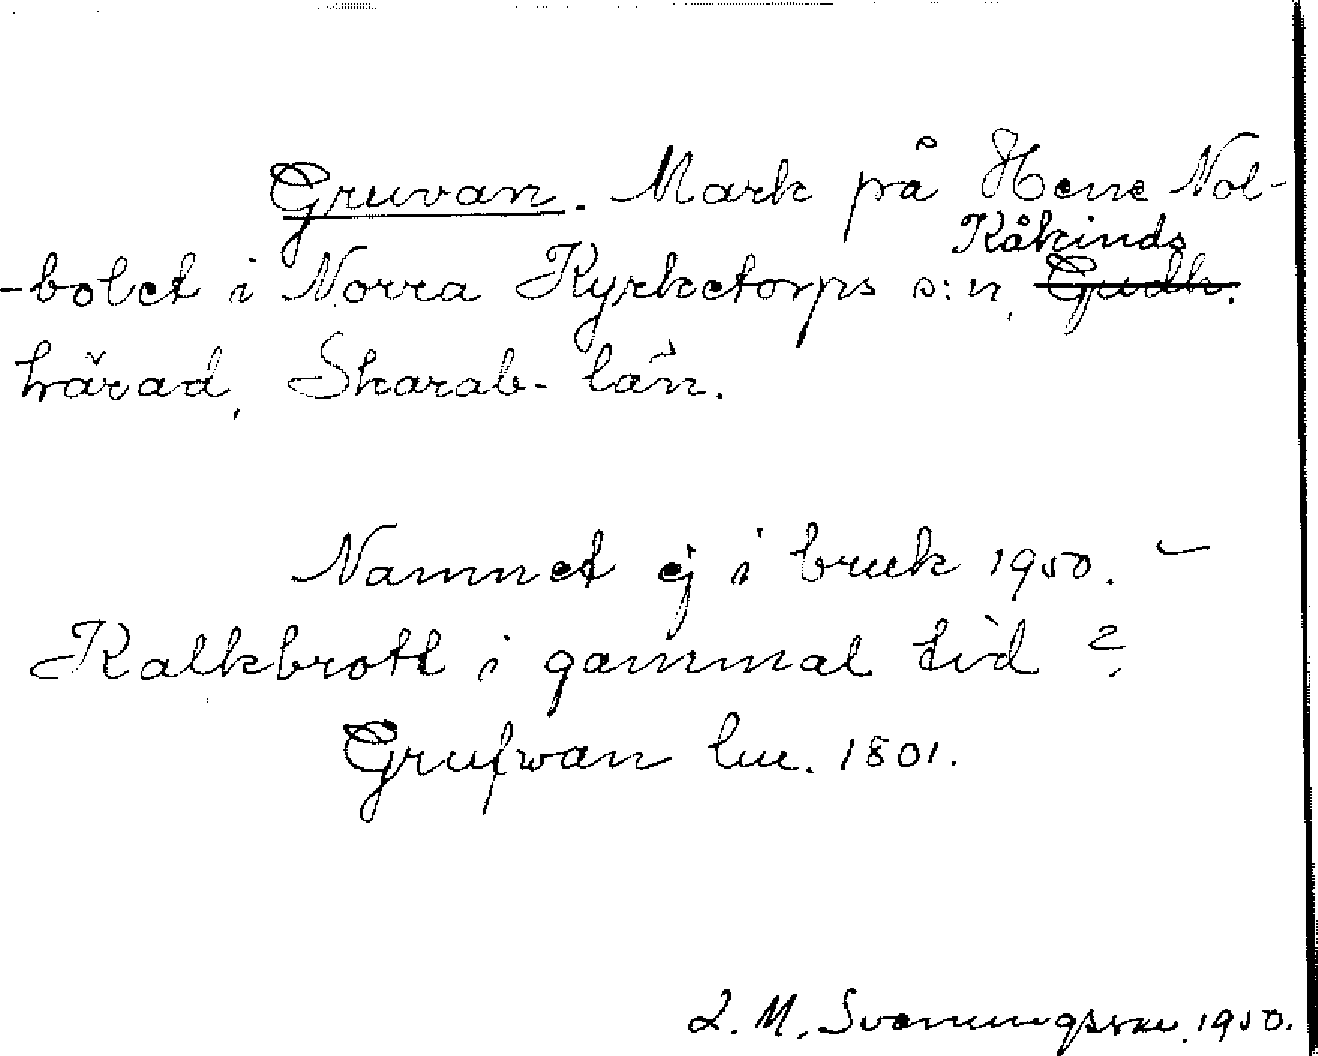 Gruvan. Mark på Hene Nol-
Kåkinds
-bolet i Norra Kyrketorps s:n, Gudh.
härad, Skarab- län.
Namnet ej i bruk 1950. –
Kalkbrott i gammal tid?
Grufwan lm. 1801.
L. M. Svenungsson. 1950.